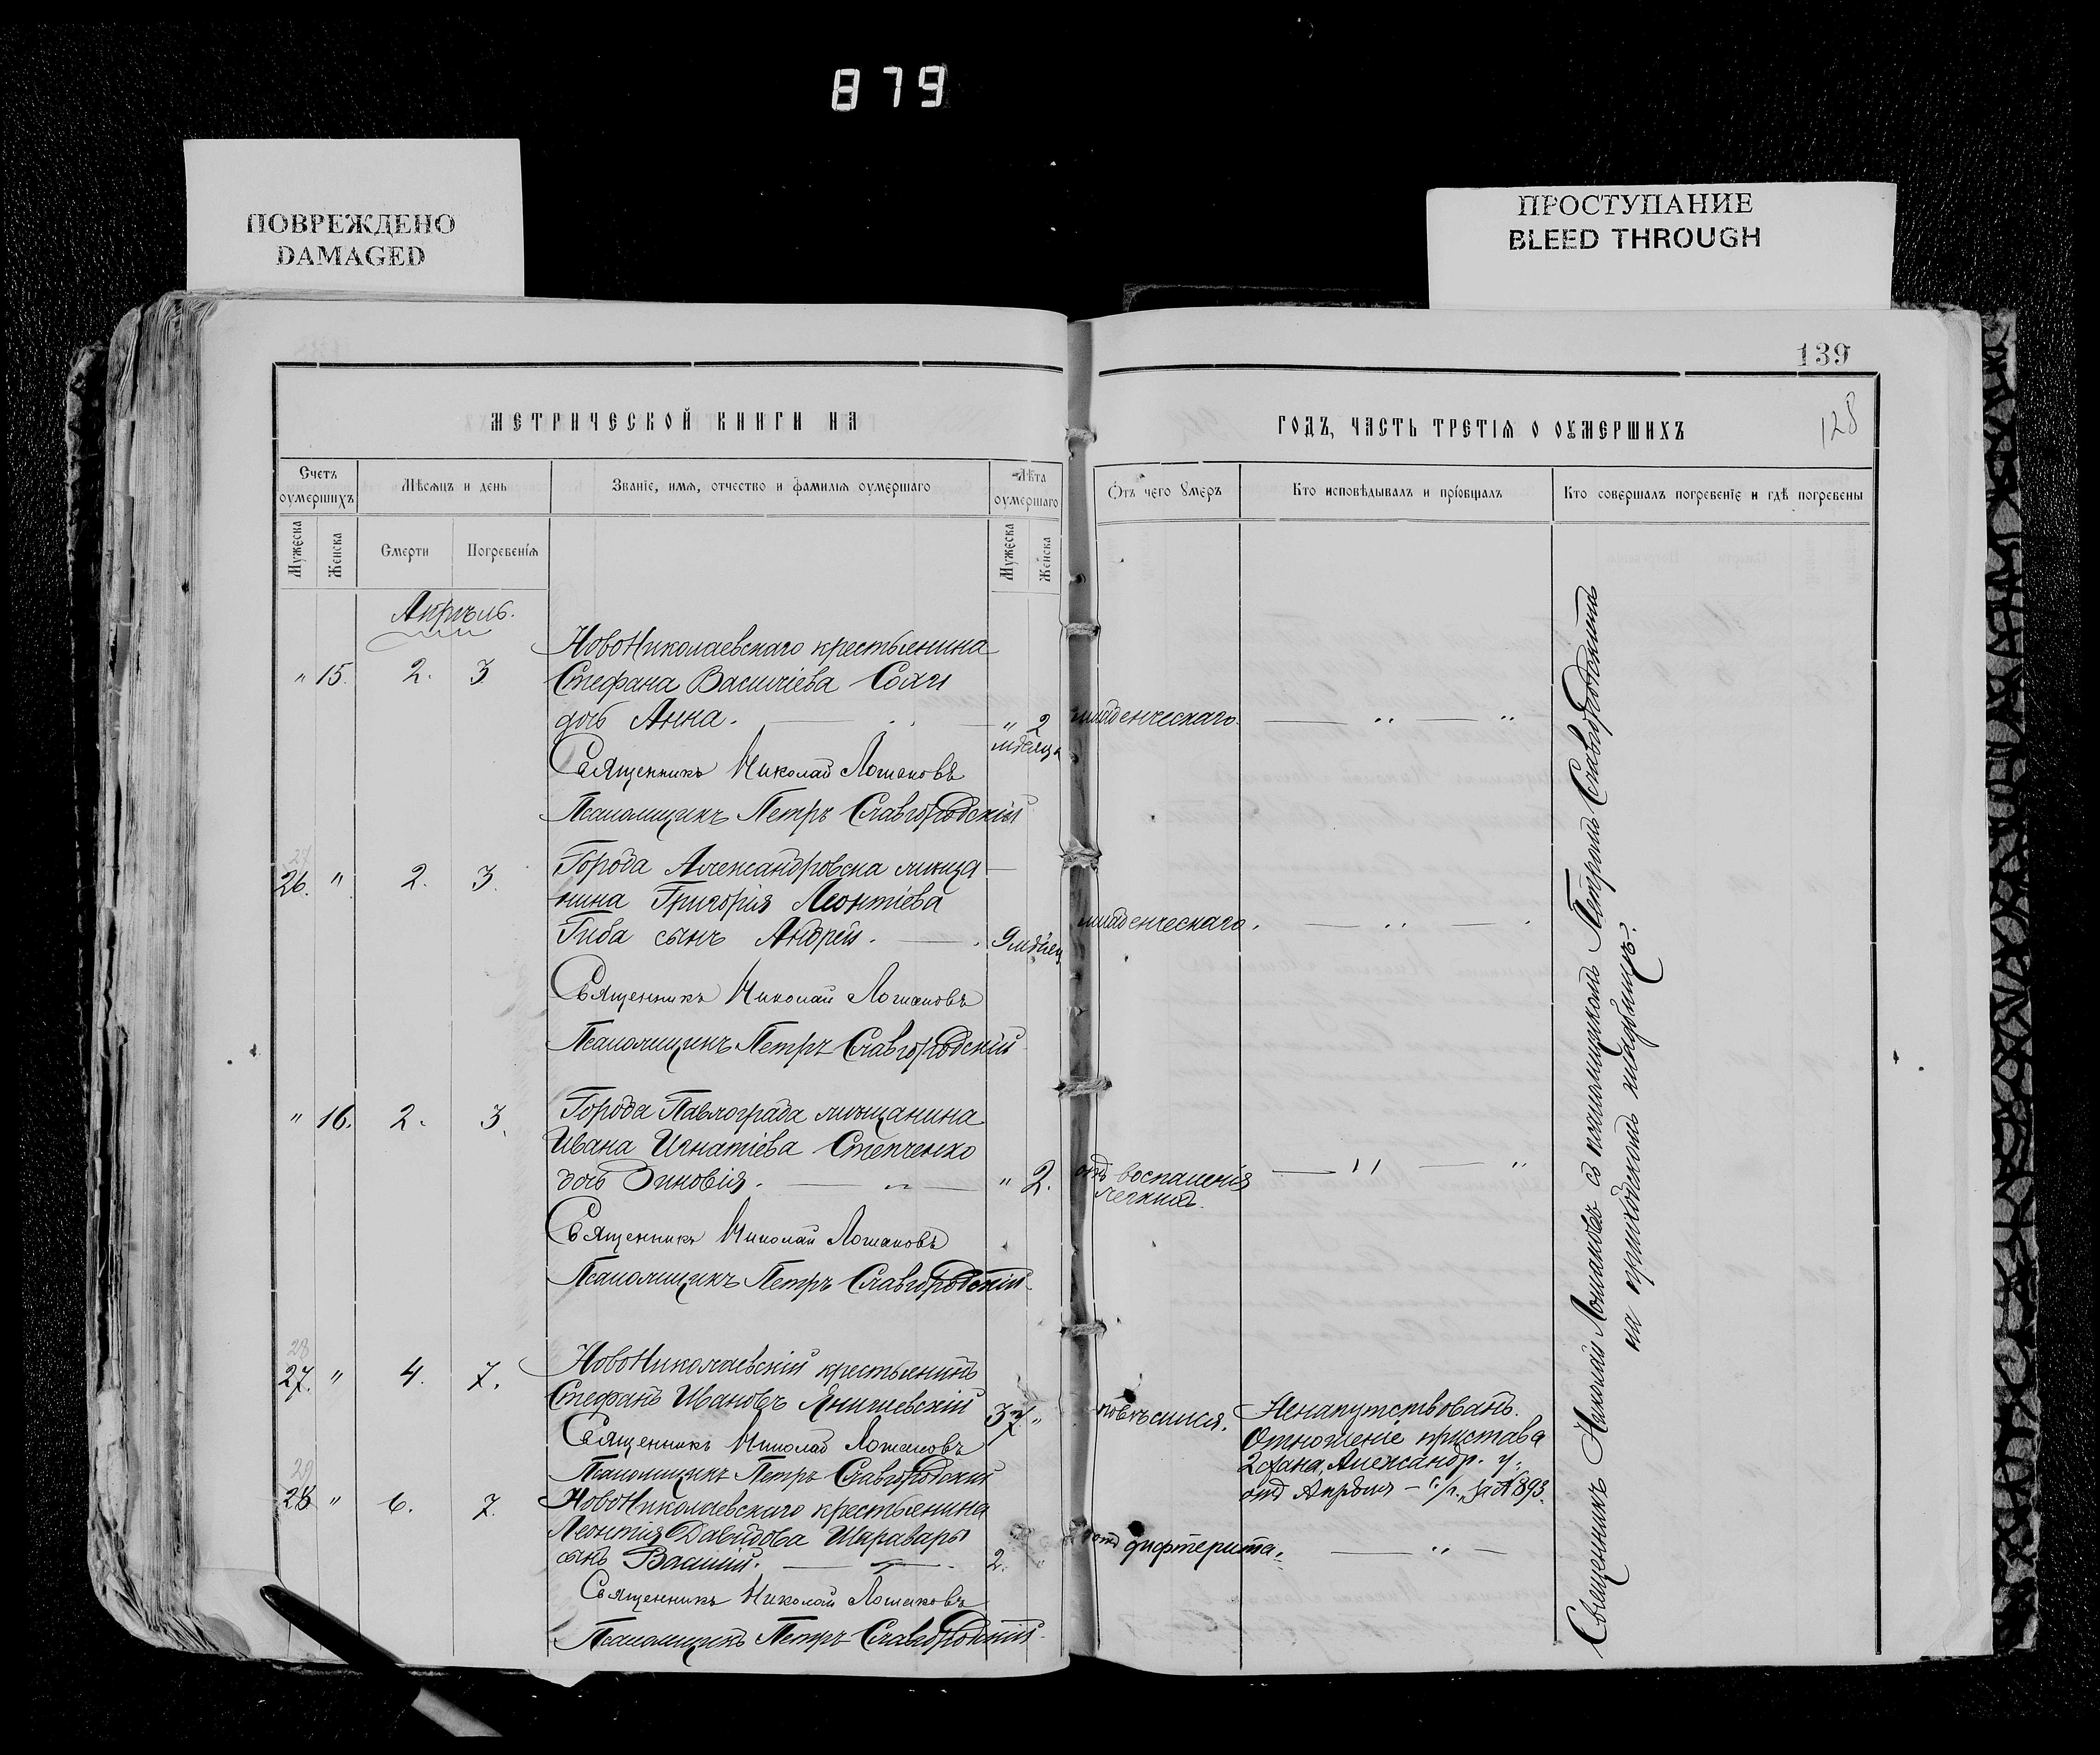 879
ПОВРЕЖДЕНО
DAMAGED
ПРОСТУПАНИЕ
BLEED THROUGH
139
128
МЕТРИЧЕСКОЙ КНИГИ НА
ГОДЪ, ЧАСТЬ ТРЕТІЯ О ОУМЕРШИХЪ
Счетъ оумершихъ
Мѣсяцъ и день
Званіе, имя, отчество и фамилія оумершаго
Лѣта оумершаго
Отъ чего умеръ
Кто исповѣдывалъ и пріобщалъ
Кто совершалъ погребеніе и гдѣ погребены
Мужеска
Женска
Смерти
Погребенія
Мужеска
Женска
Апрѣль.
НовоНиколаевскаго крестьянина
" 15. 2. 3. Стефана Василіева
дочь Анна. " 2 младенческаго. " "
мѣсяца
Священникъ Николай Лошаковъ
Псаломщикъ Петръ Славгородскій
27
Города Александровска мѣща
26. " 2. 3. нина Григорія Леонтіева
Гиба сынъ Андрей. 9 мѣсяц младенческаго. "
Священникъ Николай Лошаковъ
Псаломщикъ Петръ Славгородскій
" 16. 2. 3. Города Павлограда мѣщанина
Ивана Игнатіева Степченко
дочь Зиновія. " " 2. отъ воспаленія " "
легкихъ.
Священникъ Николай Лошаковъ
Псаломщикъ Петръ Славгородскій
28
27. " 4. 7. НовоНиколаевскій крестьянинъ
Стефанъ Ивановъ Янишевскій 37 " повѣсился. Ненапутствованъ.
Священникъ Николай Лошаковъ Отношеніе пристава
Псаломщикъ Петръ Славгородскій 2 стана, Александр. у.
отъ Апрѣля 1893.
29
28 " 6. 7. НовоНиколаевскаго крестьянина
Леонтія Давидова Шаравары
сынъ Василій. " 2. " отъ дифтерита. "
Священникъ Николай Лошаковъ
Псаломщикъ Петръ Славгородскій
Священникъ Николай Лошаковъ съ псаломщикомъ Петромъ Славгородскимъ
на приходскомъ кладбищѣ.